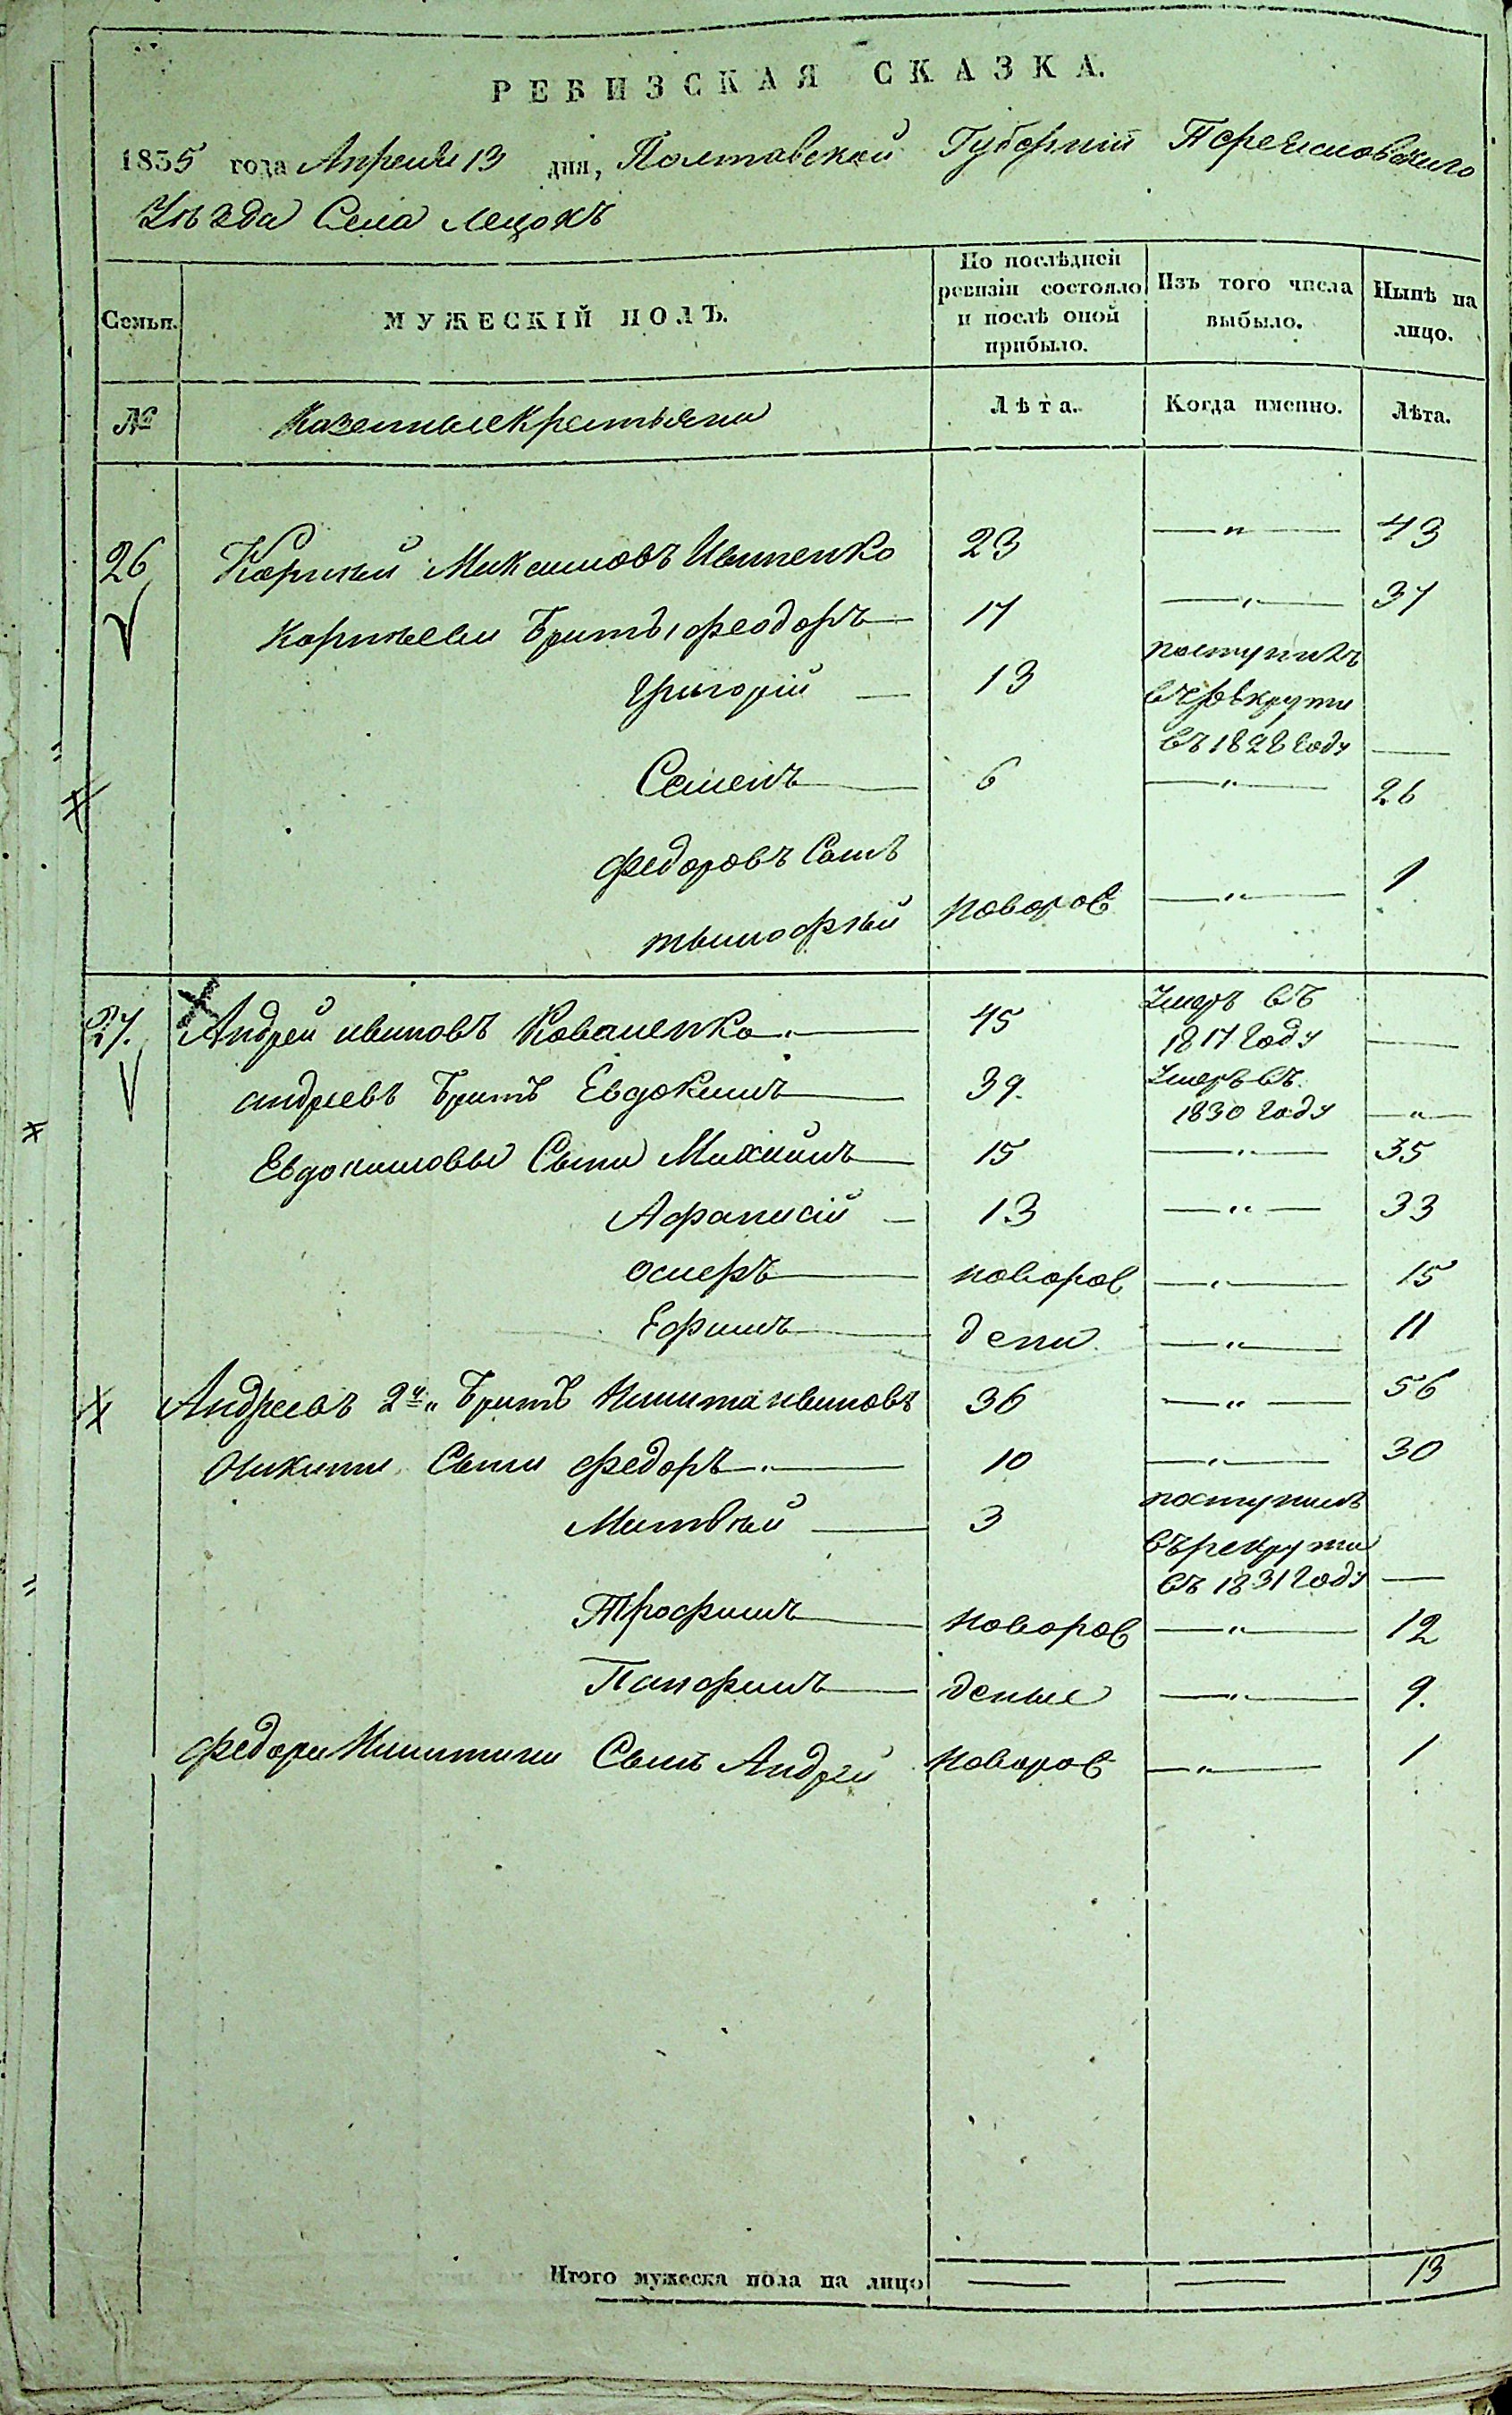 РЕВИЗСКАЯ СКАЗКА.
1835 года Апреля 13 дня, Полтавской Губерніи Переяславскаго
Уѣзда Села Лецокъ
Семьи. МУЖЕСКІЙ ПОЛЪ. По послѣдней ревизіи состояло и послѣ оной прибыло. Изъ того числа выбыло. Нынѣ на лицо.
№ Казенные Крестьяне Лѣта. Когда именно. Лѣта.
26 Корнѣй Максимовъ 23 —„— 43
Корнѣевы Братья Феодоръ 17 —„— 37
Григорій 13 поступилъ
въ рекруты
въ 1828 году —
Семенъ 6 —„— 26
Федоровъ Сынъ
Тимофѣй новорож —„— 1
27. Андрей Ивановъ Коваленко 45 Умеръ въ
1817 году —
Андреевъ Братъ Евдокимъ 39. Умеръ въ
1830 году —„—
Евдокимовы Сыны Михаилъ 15 —„— 35
Афанасій 13 —„— 33
новорож —„— 15
Ефимъ дены —„— 11
Андреевъ 2й Братъ Никита Ивановъ 36 —„— 56
Никиты Сыны Федоръ 10 —„— 30
Матвѣй 3 поступилъ
въ рекруты
въ 1831 году —
Трофимъ новорож —„— 12
Панфилъ деные —„— 9.
Федора Никитина Сынъ Андрей новорож —„— 1
Итого мужеска пола на лицо — — 13